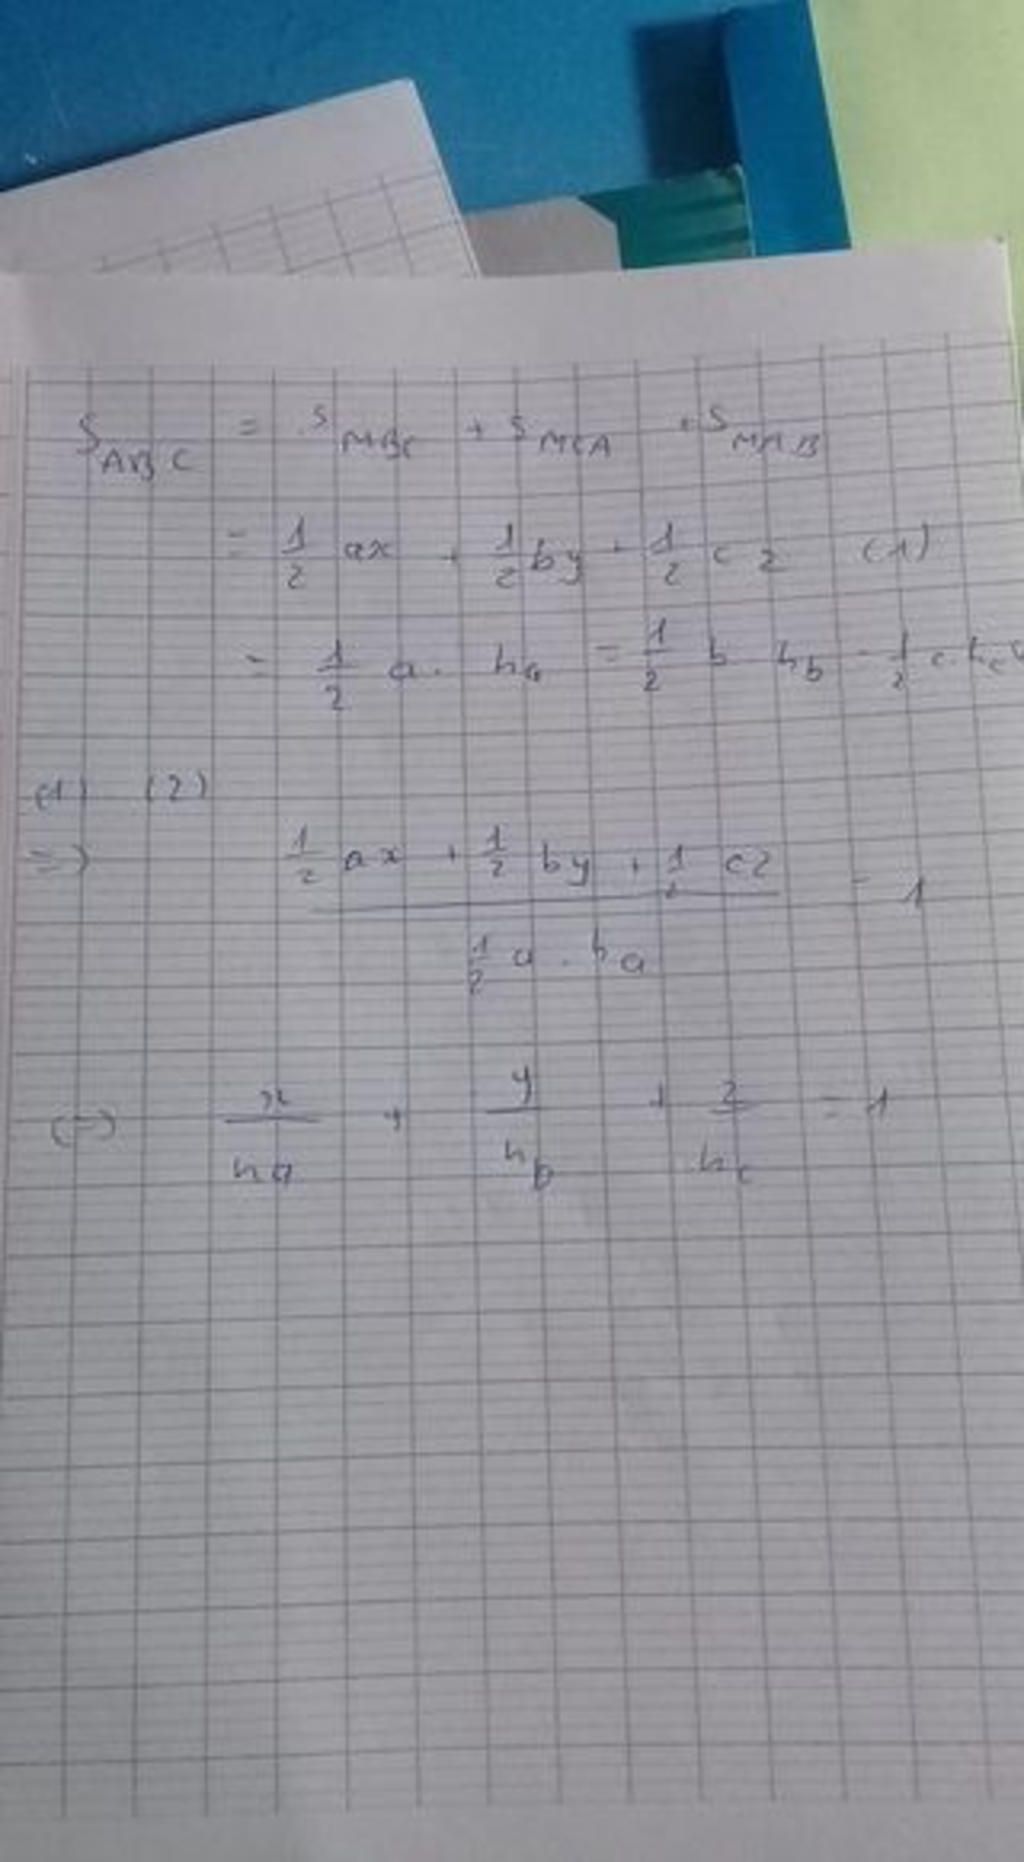 S_ABC = S_MBC + S_MCA + S_MAB
= 1/2 ax + 1/2 by + 1/2 cz (1)
= 1/2 a. ha = 1/2 b hb = 1/2 c.hc
(1) (2)
=> (1/2 ax + 1/2 by + 1/2 cz) / (1/2 a . ha) = 1
(=) x/ha + y/hb + z/hc = 1